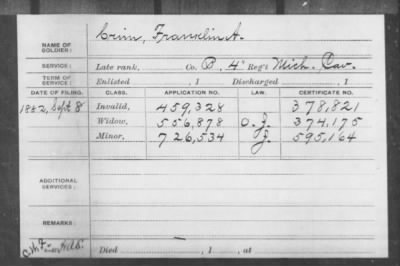 NAME OF SOLDIER: Crim, Franklin A.
SERVICE: Late rank, Co. B, 4" Reg't Mich. Cav.
TERM OF SERVICE: Enlisted , 1 Discharged , 1
DATE OF FILING. CLASS. APPLICATION NO. LAW. CERTIFICATE NO.
1882, Sept 8 Invalid, 459,328 378,821
Widow, 556,878 O.J. 374,175
Minor, 726,534 J. 595,164
ADDITIONAL SERVICES:
REMARKS:
Died , 1 , at